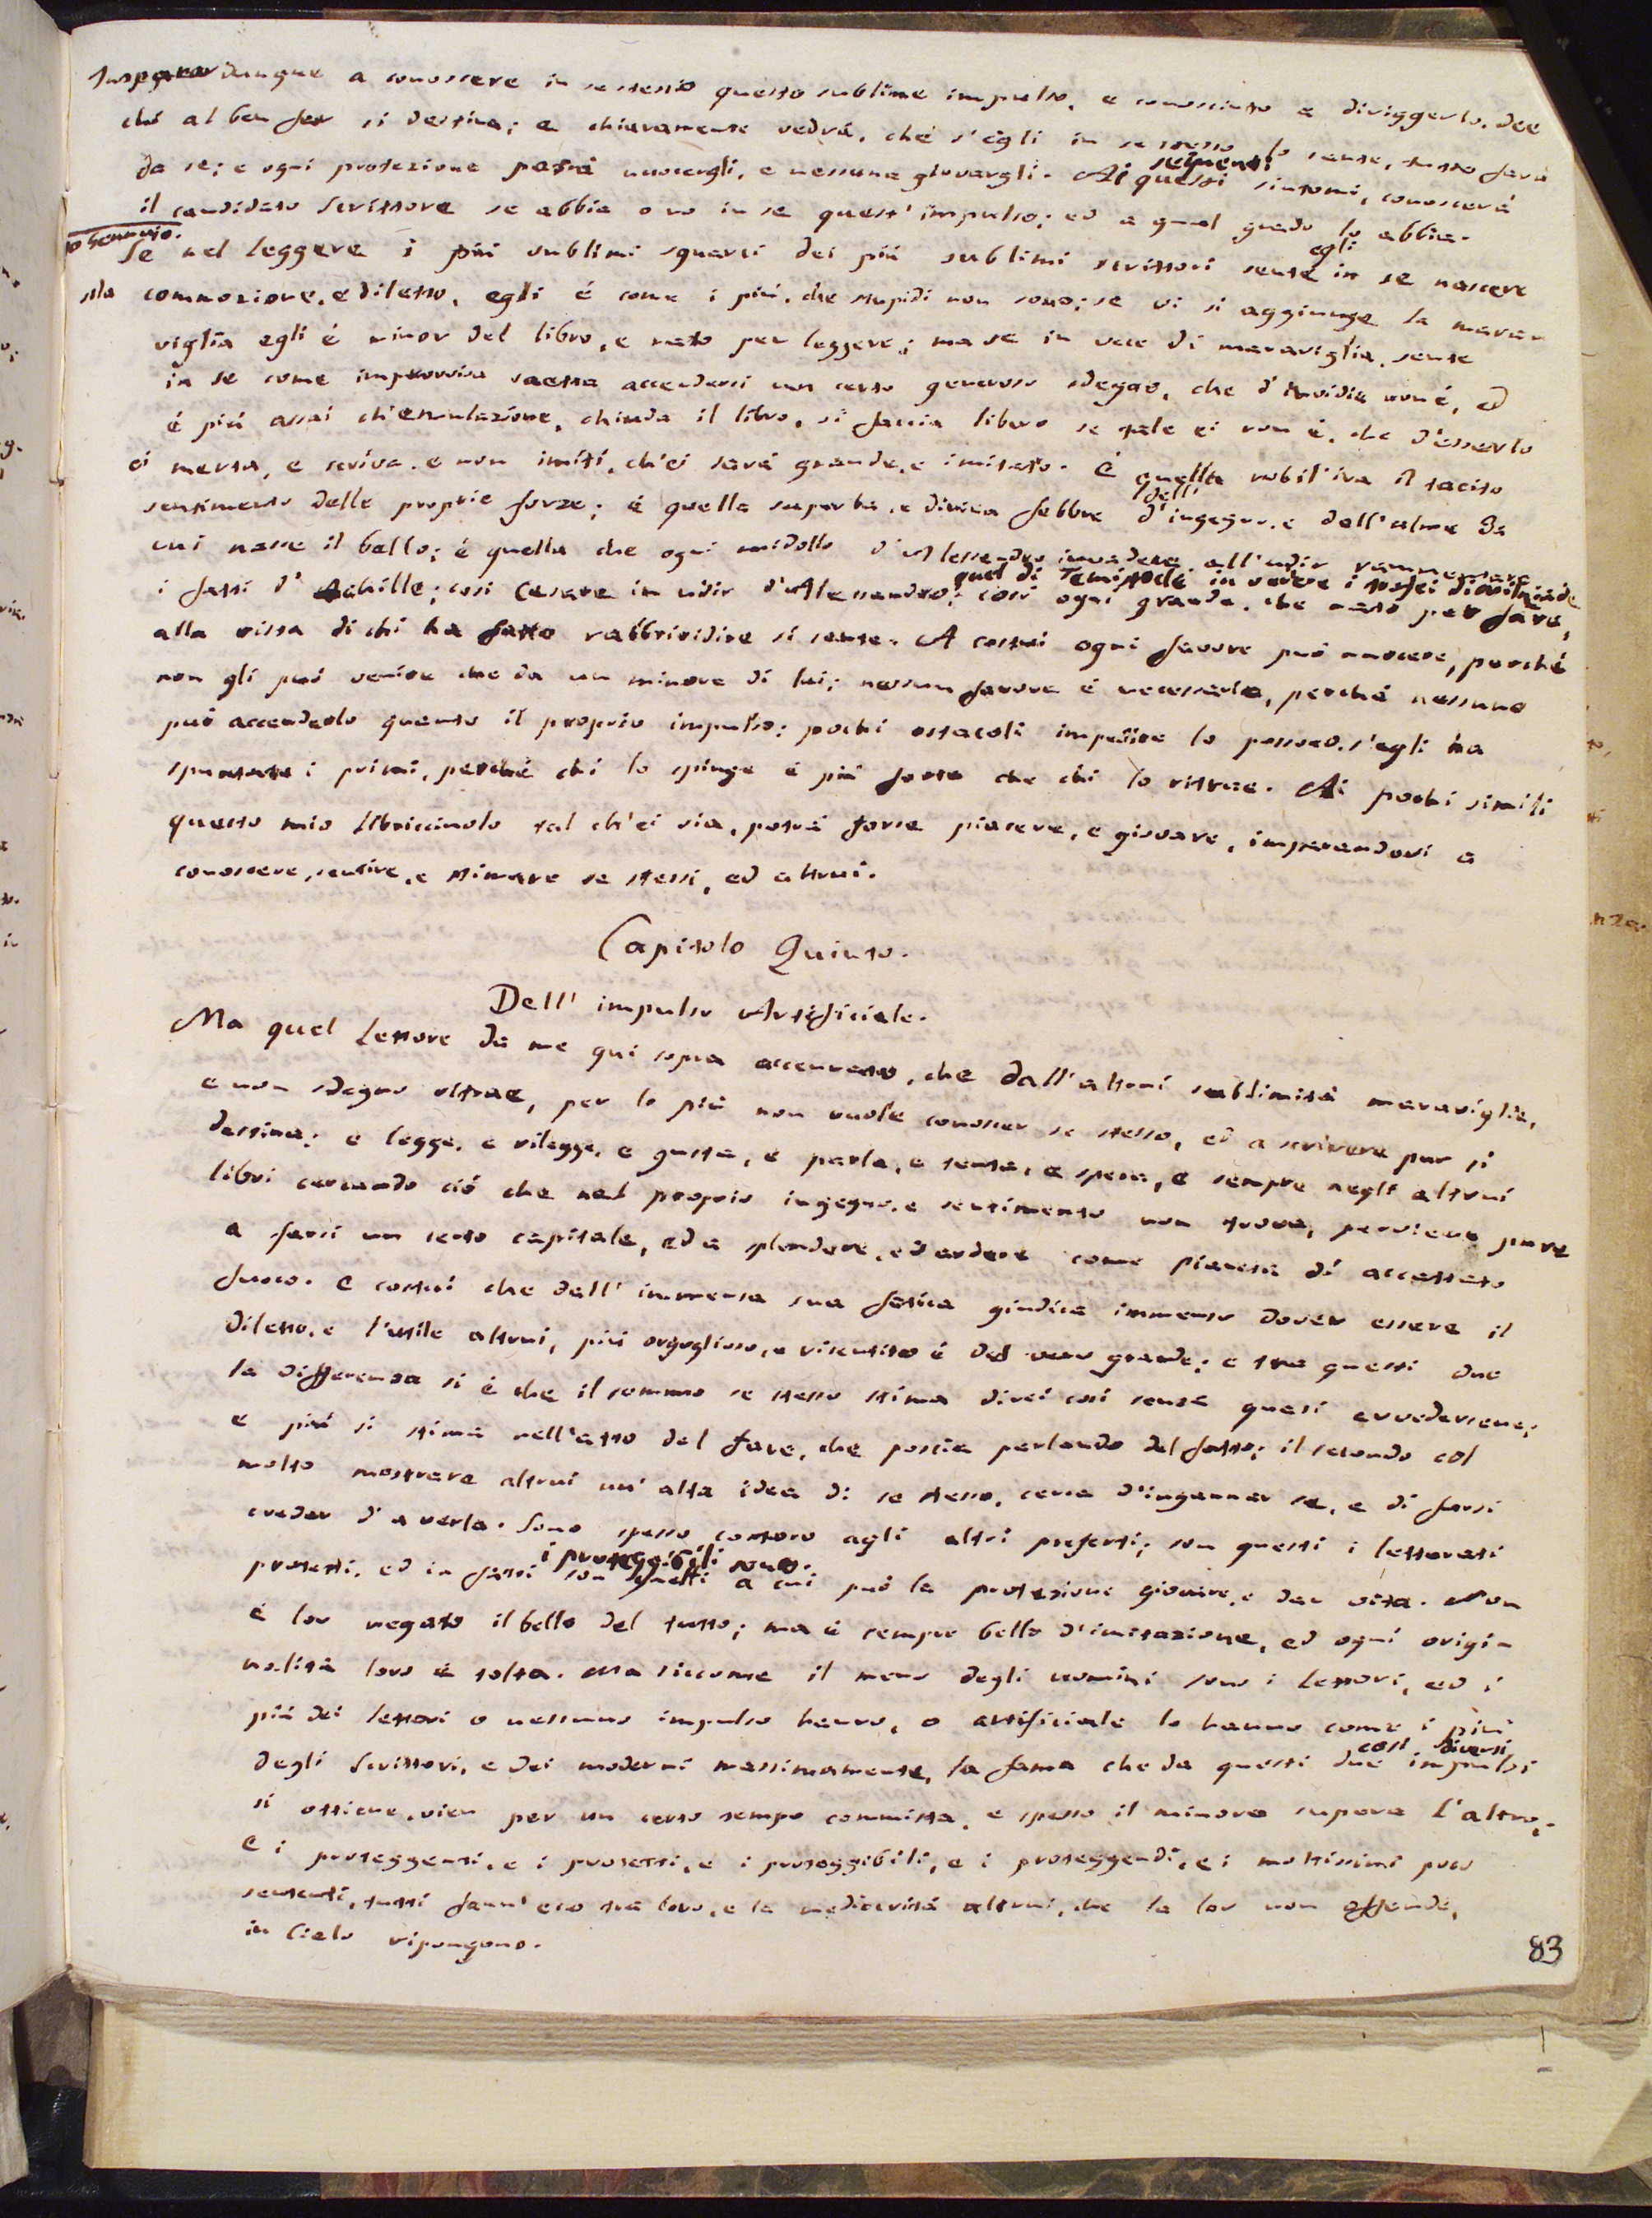 Imparar dunque a conoscere in se stesso questo sublime impulso, e conosciuto a diriggerlo, dee
chi al ben far si destina; e chiaramente vedrà, che s'egli in se stesso lo sente, tutto farà
da se; e ogni protezione potrà nuocergli, e nessuna giovargli. Ai questi sintomi, conoscerà
seguenti
il candidato scrittore se abbia o no in se quest'impulso; ed a qual grado lo abbia.
10 Gennaio.
Se nel leggere i più sublimi squarci dei più sublimi scrittori sente in se nascere
egli
commozione, e diletto, egli é come i più, che stupidi non sono; se vi si aggiunge la mara-
viglia egli é minor del libro, e nato per leggere; ma se in vece di maraviglia, sente
in se come improvvisa saetta accendersi un certo generoso sdegno, che d'invidia non é, ed
é più assai ch'emulazione, chiuda il libro, si faccia libero se tale ei non é, che d'esserlo
ei merta, e scriva, e non imiti, ch'ei sarà grande, e imitato. é quella nobil'ira il tacito
sentimento delle proprie forze; é quella superba, e divina febbre d'ingegno, e dell'alma da
dell'
cui nasce il bello; é quella che ogni midollo d'Alessandro invadeva all'udir rammentare
i fatti d'Achille; così Cesare in udir d'Alessandro; così ogni grande, che nato per fare,
quel di Temistocle in vedere i trofei di Milziade
alla vista di chi ha fatto rabbrividire si sente. A costui ogni favore può nuocere, perché
non gli può venire che da un minore di lui; nessun favore é necessario, perché nessuno
può accenderlo quanto il proprio impulso; pochi ostacoli impedire lo possono, s'egli ha
spuntato i primi, perché chi lo spinge é più forte che chi lo ritrae. Ai pochi simili
questo mio libriccinolo tal ch'ei sia, potrà forse piacere, e giovare, imparandovi a
conoscere, sentire, e stimare se stessi, ed altrui.
Capitolo Quinto.
Dell' impulso Artificiale.
Ma quel Lettore da me qui sopra accennato, che dall'altrui sublimità maraviglia,
e non sdegno ritrae, per lo più non vuole conoscer se stesso, ed a scrivere pur si
destina; e legge, e rilegge, e gusta, e parla, e tenta, e spera, e sempre negli altrui
libri cercando ciò che nel proprio ingegno, e sentimento non trova, perviene pure
a farsi un certo capitale, ed a splendere, ed ardere come pianeta di accattato
fuoco. e costui che dall' immensa sua fatica giudica immenso dover essere il
diletto, e l'utile altrui, più orgoglioso, e risentito é del vero grande; e tra questi due
la differenza si é che il sommo se stesso stima direi così senza quasi avvedersene;
e più si stima nell'atto del fare, che poscia parlando del fatto; il secondo col
molto mostrare altrui un'alta idea di se stesso, cerca d'ingannar se, e di farsi
creder d'averla. Sono spesso costoro agli altri preferti; son questi i letterati
protetti, ed in fatti son quelli a cui può la protezione giovare, e dar vita. Non
i proteggibili sono.
é lor negato il bello del tutto; ma é sempre bello d'imitazione, ed ogni origi-
nalità loro é tolta. Ma siccome il meno degli uomini sono i Lettori, ed i
più dei lettori o nessuno impulso hanno, o artificiale lo hanno come i più
degli Scrittori, e dei moderni massimamente, la fama che da questi due impulsi
così diversi
si ottiene, vien per un certo tempo commista, e spesso il minore supera l'altro.
E i proteggenti, e i protetti, e i proteggibili, e i proteggendi, e i moltissimi poco
sententi, tutti fann'eco tra loro, e la mediocrità altrui, che la lor non offende,
in Cielo ripongono.
83